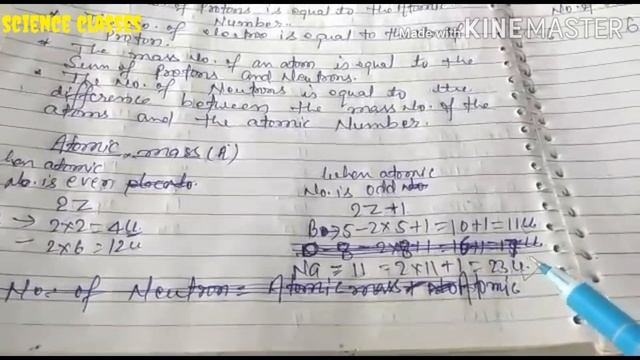 SCIENCE CLASSES
Made with KINEMASTER
of Protons is equal to the Atomic
Number.
No. of electron is equal to the No. of
Proton.
* The mass No. of an atom is equal to the
Sum of Protons and Neutrons.
* The No. of Neutrons is equal to the
difference between the mass No. of the
atoms and the atomic Number.
Atomic mass (A)
when atomic
No. is even
2Z
→ 2×2=4u
- 2×6=12u
When atomic
No. is odd
2Z+1
B→5-2×5+1=10+1=11u
8-2×8+1=16+1=17u
Na = 11 = 2×11+1=23u
No. of Neutron= Atomic mass Atomic